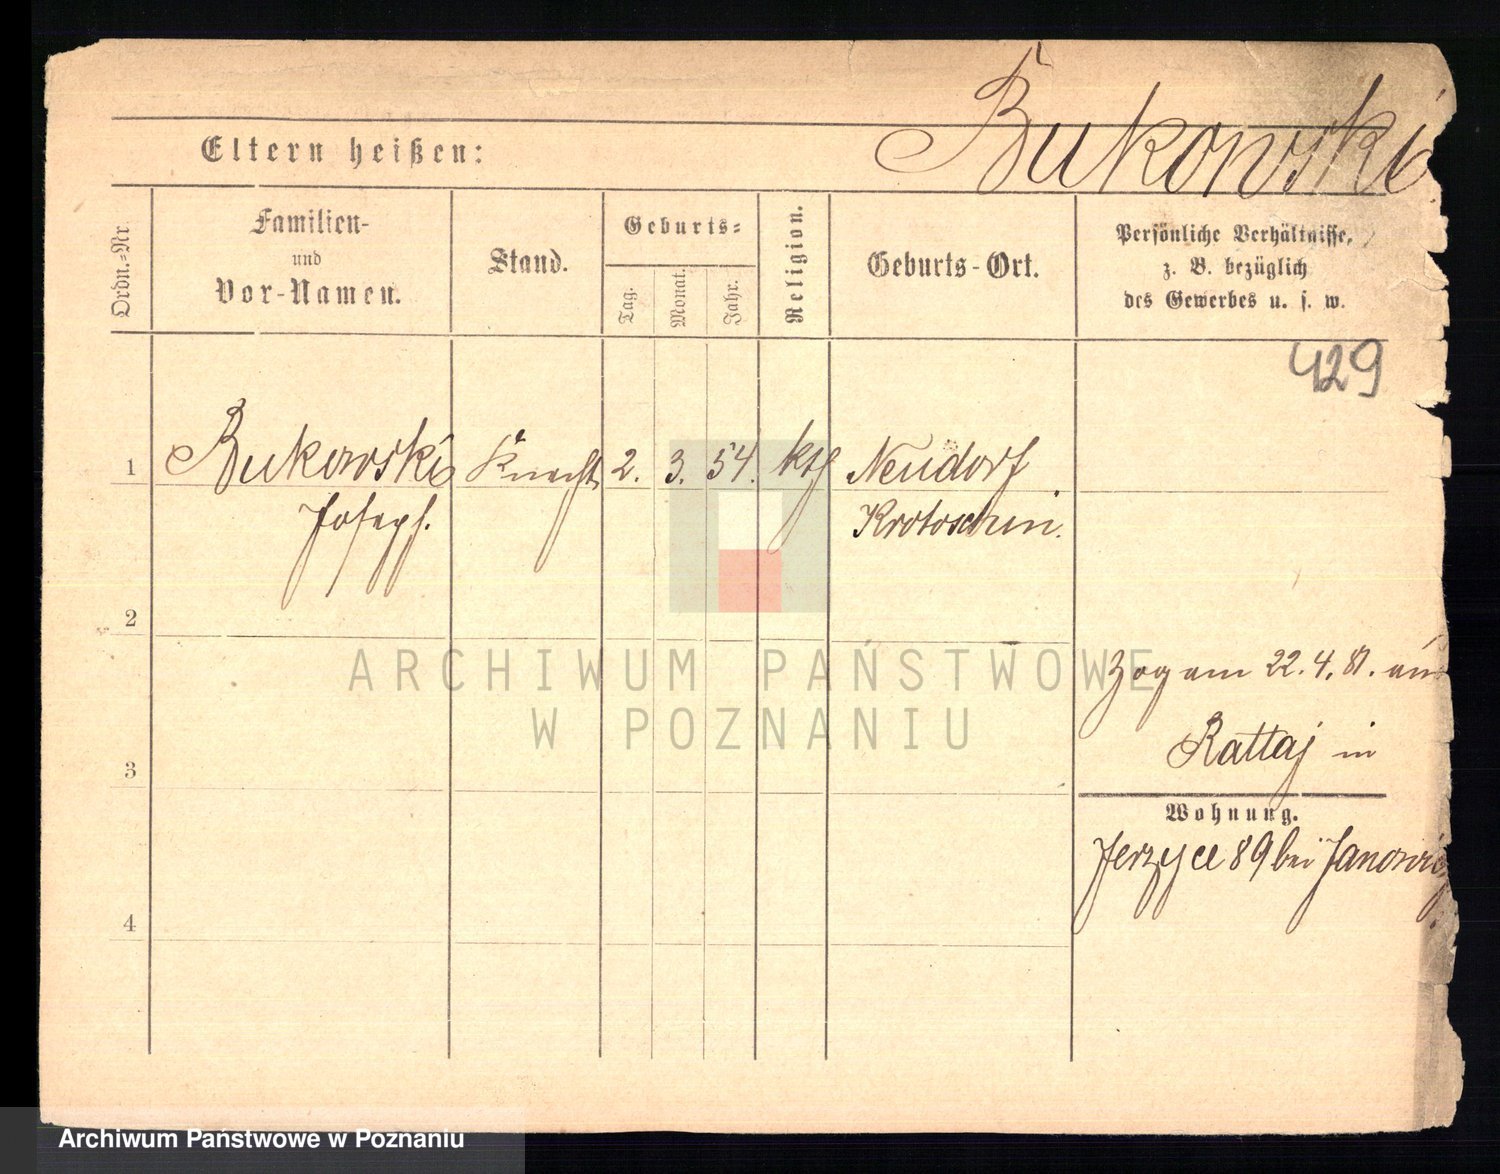 Bukowski
Eltern heißen:
Ordn.-Nr.
Familien-
und
Vor-Namen.
Stand.
Geburts-
Tag.
Monat.
Jahr.
Religion.
Geburts-Ort.
Persönliche Verhältnisse,
z. B. bezüglich
des Gewerbes u. s. w.
429
1 Bukowski Knecht 2. 3. 54. kth Neudorf
Joseph. Krotoschin.
2
ARCHIWUM PAŃSTWOWE
W POZNANIU
Zog am 22.4.81. aus
Rattaj in
3
Wohnung.
Jerzyce 89 bei
4
Archiwum Państwowe w Poznaniu